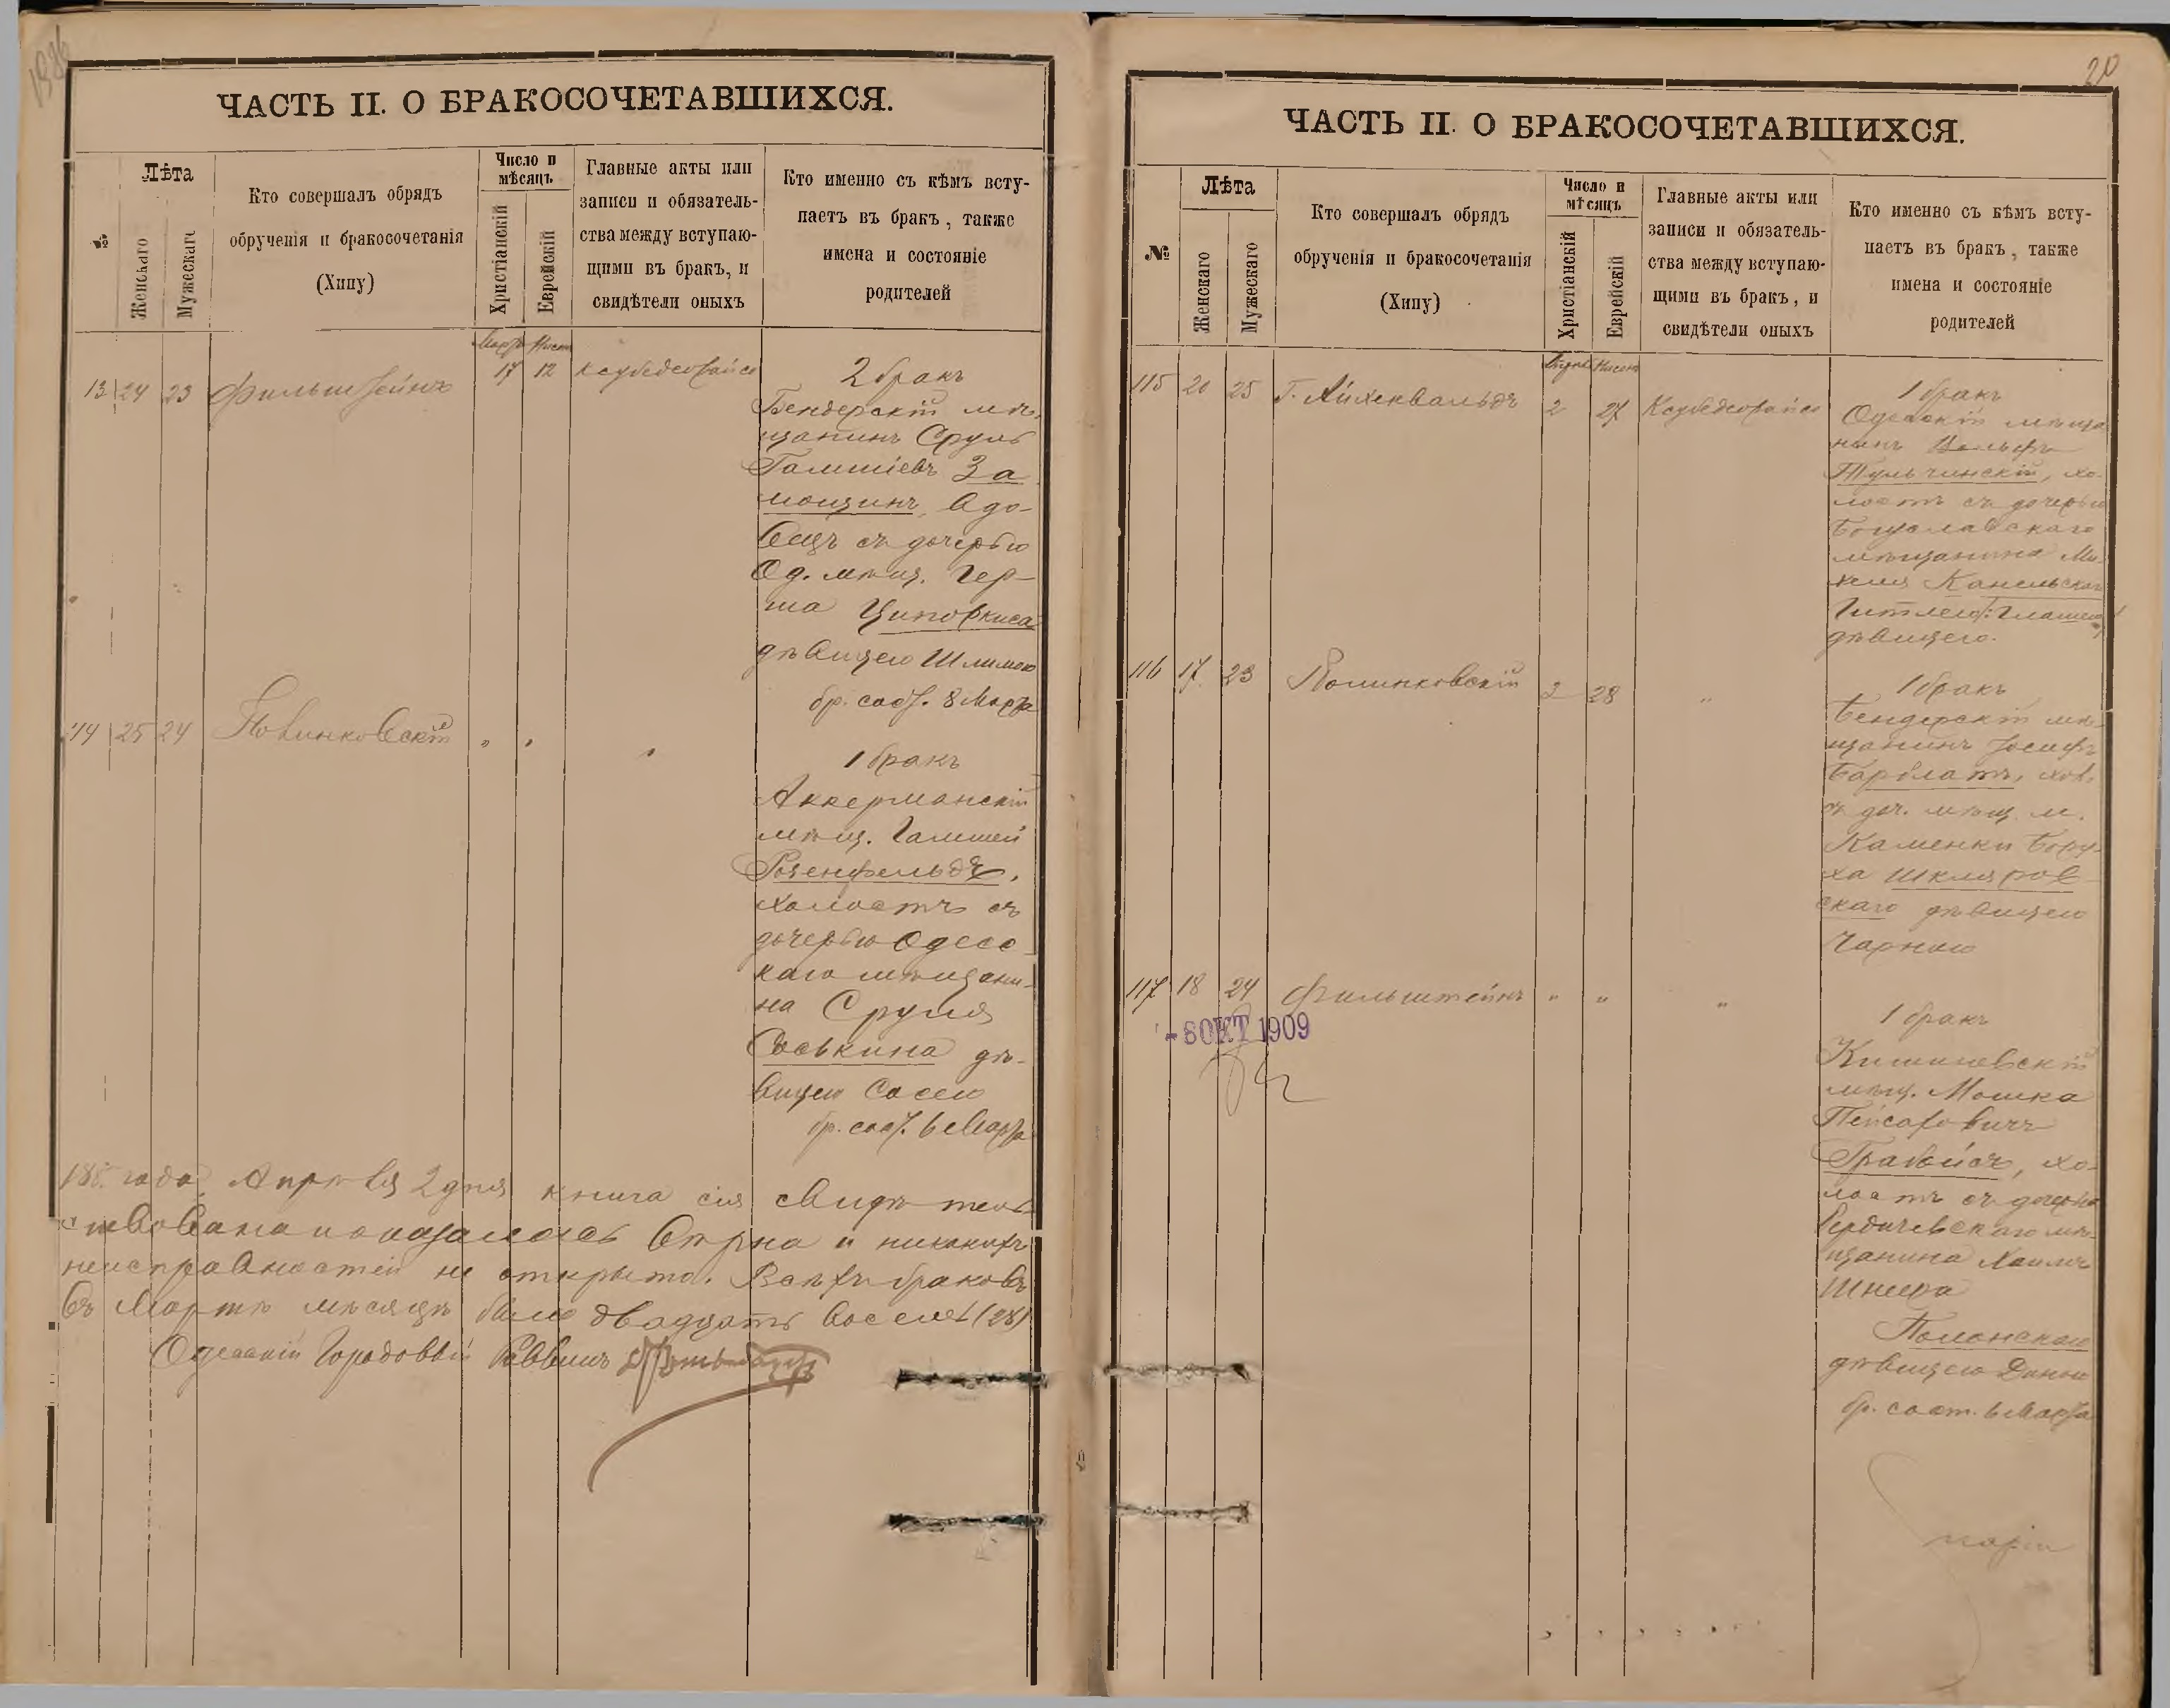 1886
ЧАСТЬ II. О БРАКОСОЧЕТАВШИХСЯ.
№
Лѣта
Женскаго
Мужескаго
Кто совершалъ обрядъ
обрученія и бракосочетанія
(Хипу)
Число и
мѣсяцъ
Христіанскій
Еврейскій
Главные акты или
записи и обязатель-
ства между вступаю-
щими въ бракъ, и
свидѣтели оныхъ
Кто именно съ кѣмъ всту-
паетъ въ бракъ, также
имена и состояніе
родителей
Мартъ Нисонъ
13 24 23 Фильштейнъ 17 12
2 бракъ
Бендерскій мѣ-
щанинъ Сруль
Гамшіевъ За
мощинъ, вдо-
вецъ съ дочерью
Од. мѣщ. Гер-
ша Циповкиса
дѣвицею Шлимою
бр. сост. 8 Марта
14 25 24 " " "
1 бракъ
Аккерманскій
мѣщ. Гамшей
Розенфельдъ,
холостъ съ
дочерью Одесс
каго мѣщани-
на Сруля
Соськина дѣ-
вицею Сосею
бр. сост. 6 Марта
188 года Апрѣля 2 дня книга сія свидѣтель
ствована и оказалась вѣрна и никакихъ
неисправностей не открыто. Всѣхъ браковъ
въ Мартѣ мѣсяцѣ было двадцать восемь (28)
Одесскій Городовой Раввинъ
20
ЧАСТЬ II. О БРАКОСОЧЕТАВШИХСЯ.
№
Лѣта
Женскаго
Мужескаго
Кто совершалъ обрядъ
обрученія и бракосочетанія
(Хипу)
Число и
мѣсяцъ
Христіанскій
Еврейскій
Главные акты или
записи и обязатель-
ства между вступаю-
щими въ бракъ, и
свидѣтели оныхъ
Кто именно съ кѣмъ всту-
паетъ въ бракъ, также
имена и состояніе
родителей
Нисонъ
115 20 25 Г. Айхенвальдъ 2 27
1 бракъ
Одесскій мѣща
нинъ Вольфъ
Тульчинскій, хо-
лостъ съ дочерью
Богуславскаго
мѣщанина Ми-
хеля Канельскаго
дѣвицею.
116 17 23 28 "
1 бракъ
Бендерскій мѣ-
щанинъ Іосифъ
Барблатъ, хол.
съ доч. мѣщ. м.
Каменки Бору-
ха Шкляров-
скаго дѣвицею
Чарною
117 18 24 Фильштейнъ " " "
- 8 ОКТ 1909
1 бракъ
Кишиневскій
мѣщ. Мошка
Пейсаховичъ
хо-
лостъ съ дочерью
Бердичевскаго мѣ-
щанина Хаимъ
Шнеера
Полонскаго
дѣвицею
бр. сост. 6 Марта